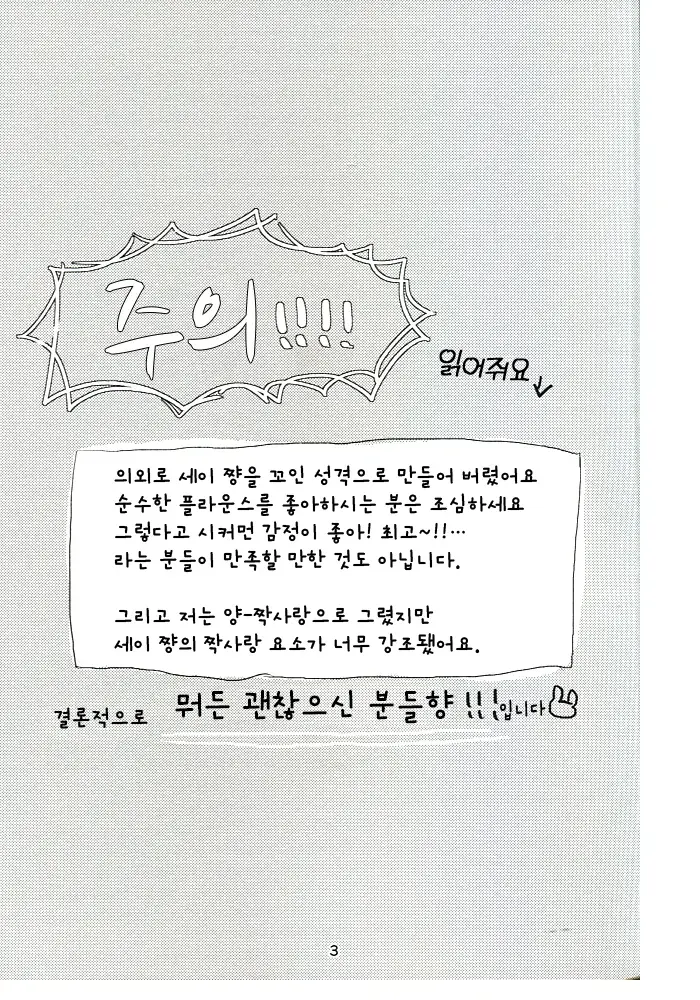 주의!!!!
읽어줘요
의외로 세이 쨩을 꼬인 성격으로 만들어 버렸어요
순수한 플라운스를 좋아하시는 분은 조심하세요
그렇다고 시커먼 감정이 좋아! 최고~!!…
라는 분들이 만족할 만한 것도 아닙니다.
그리고 저는 양-짝사랑으로 그렸지만
세이 쨩의 짝사랑 요소가 너무 강조됐어요.
결론적으로 뭐든 괜찮으신 분들향!!!입니다
3